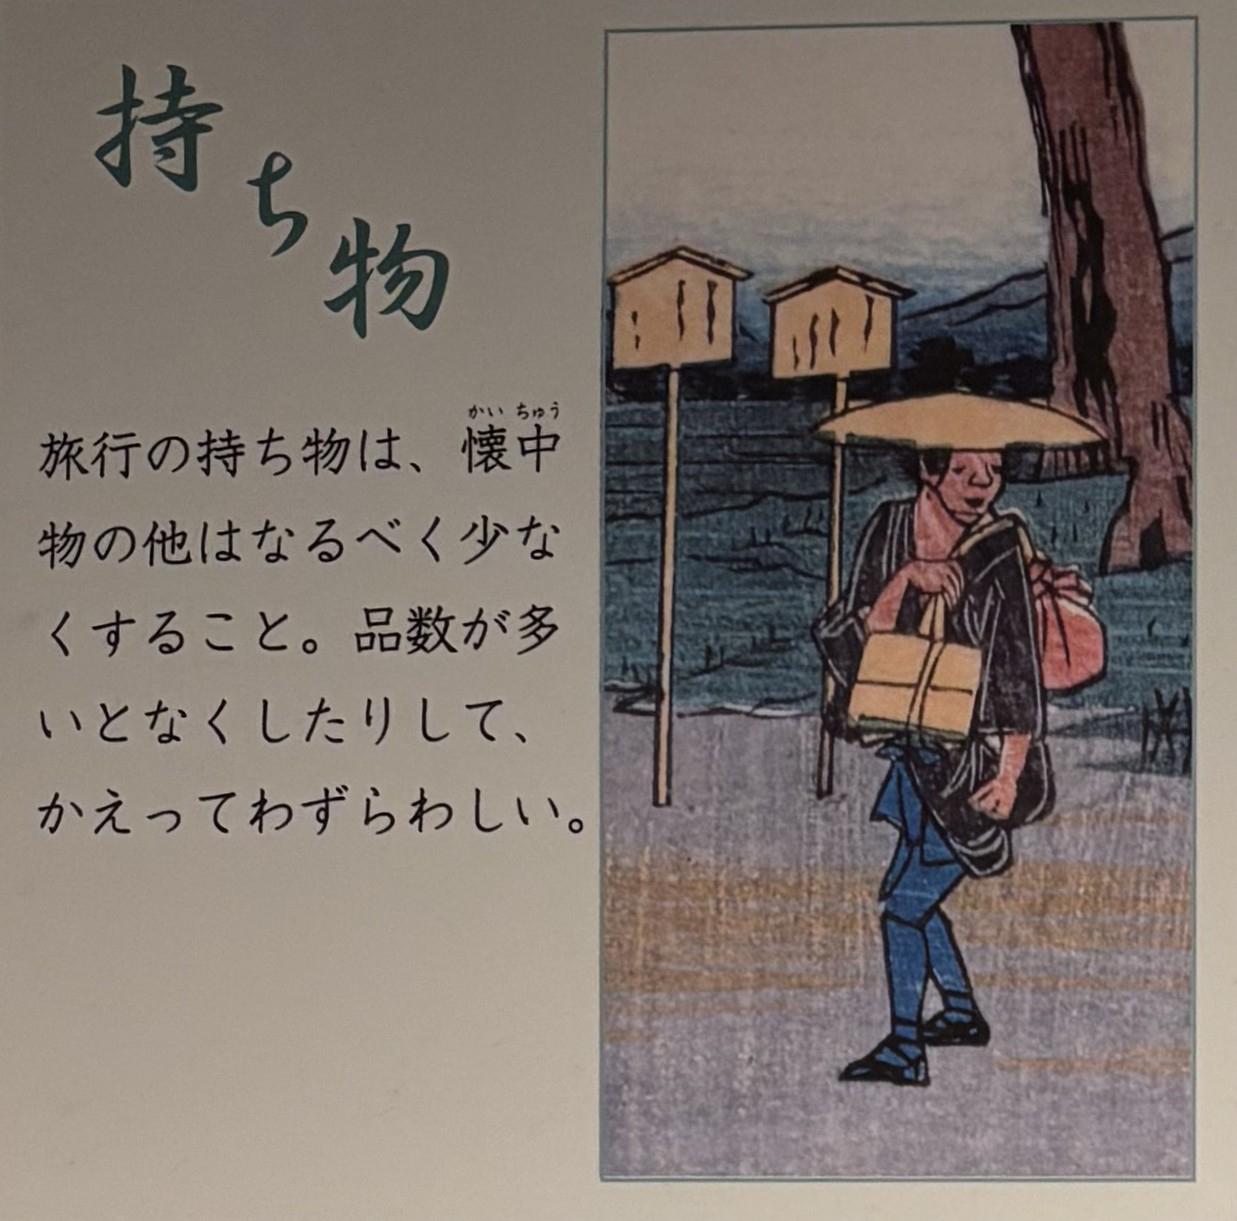 持ち物
旅行の持ち物は、懐中
物の他はなるべく少な
くすること。品数が多
いとなくしたりして、
かえってわずらわしい。
かい ちゅう